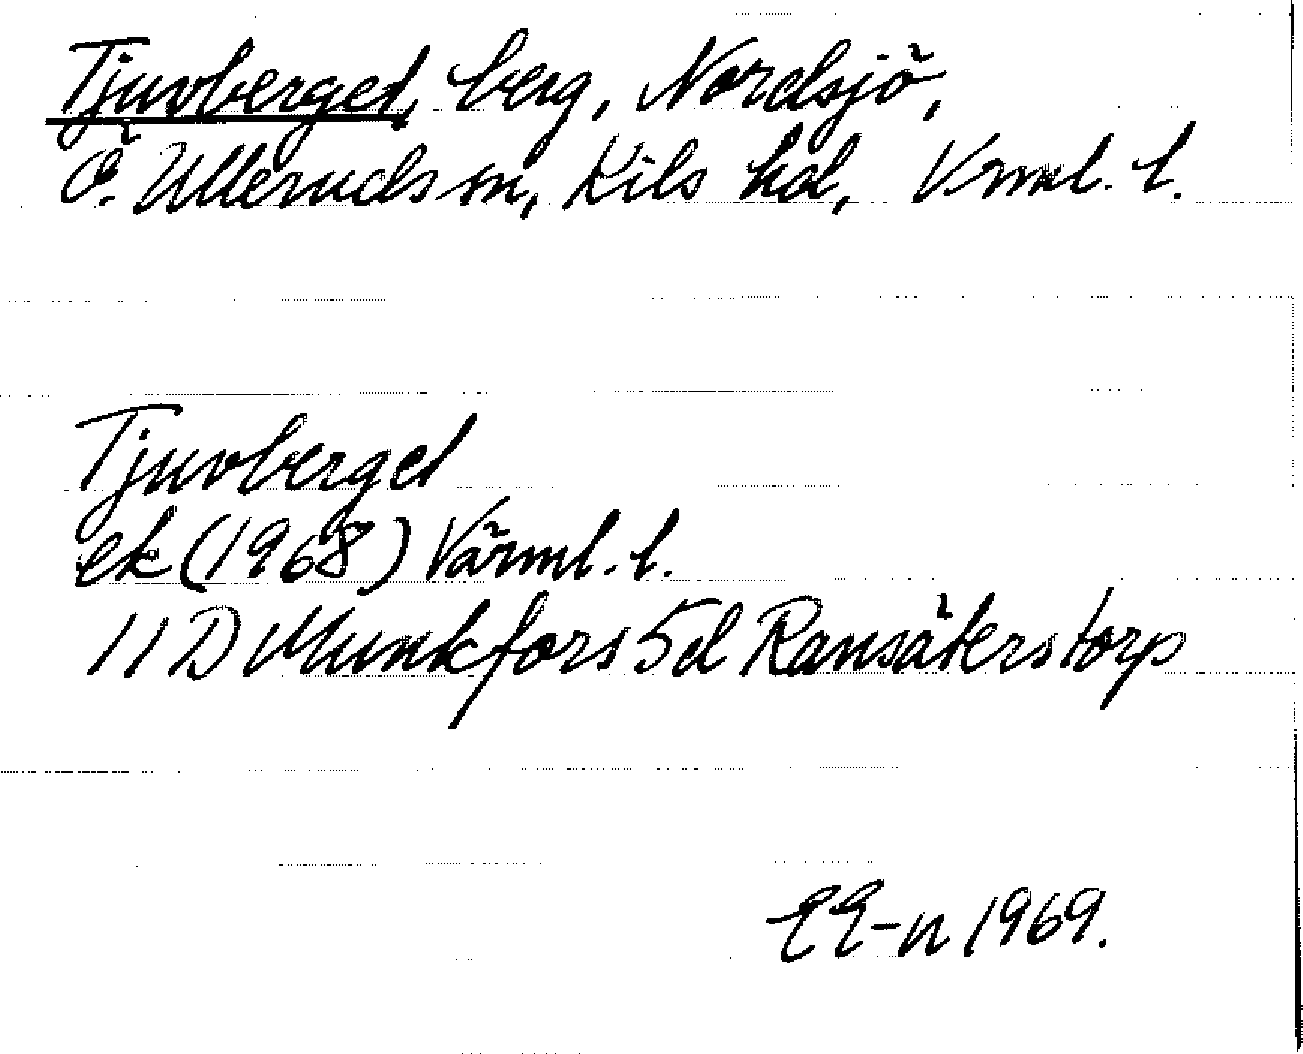 Tjuvberget, berg, Nordsjö,
Ö. Ulleruds sn, Kils hd, Vrml. l.
Tjuvberget
ek (1968) Värml. l.
11 D Munkfors 5d Ransäterstorp
EE-n 1969.